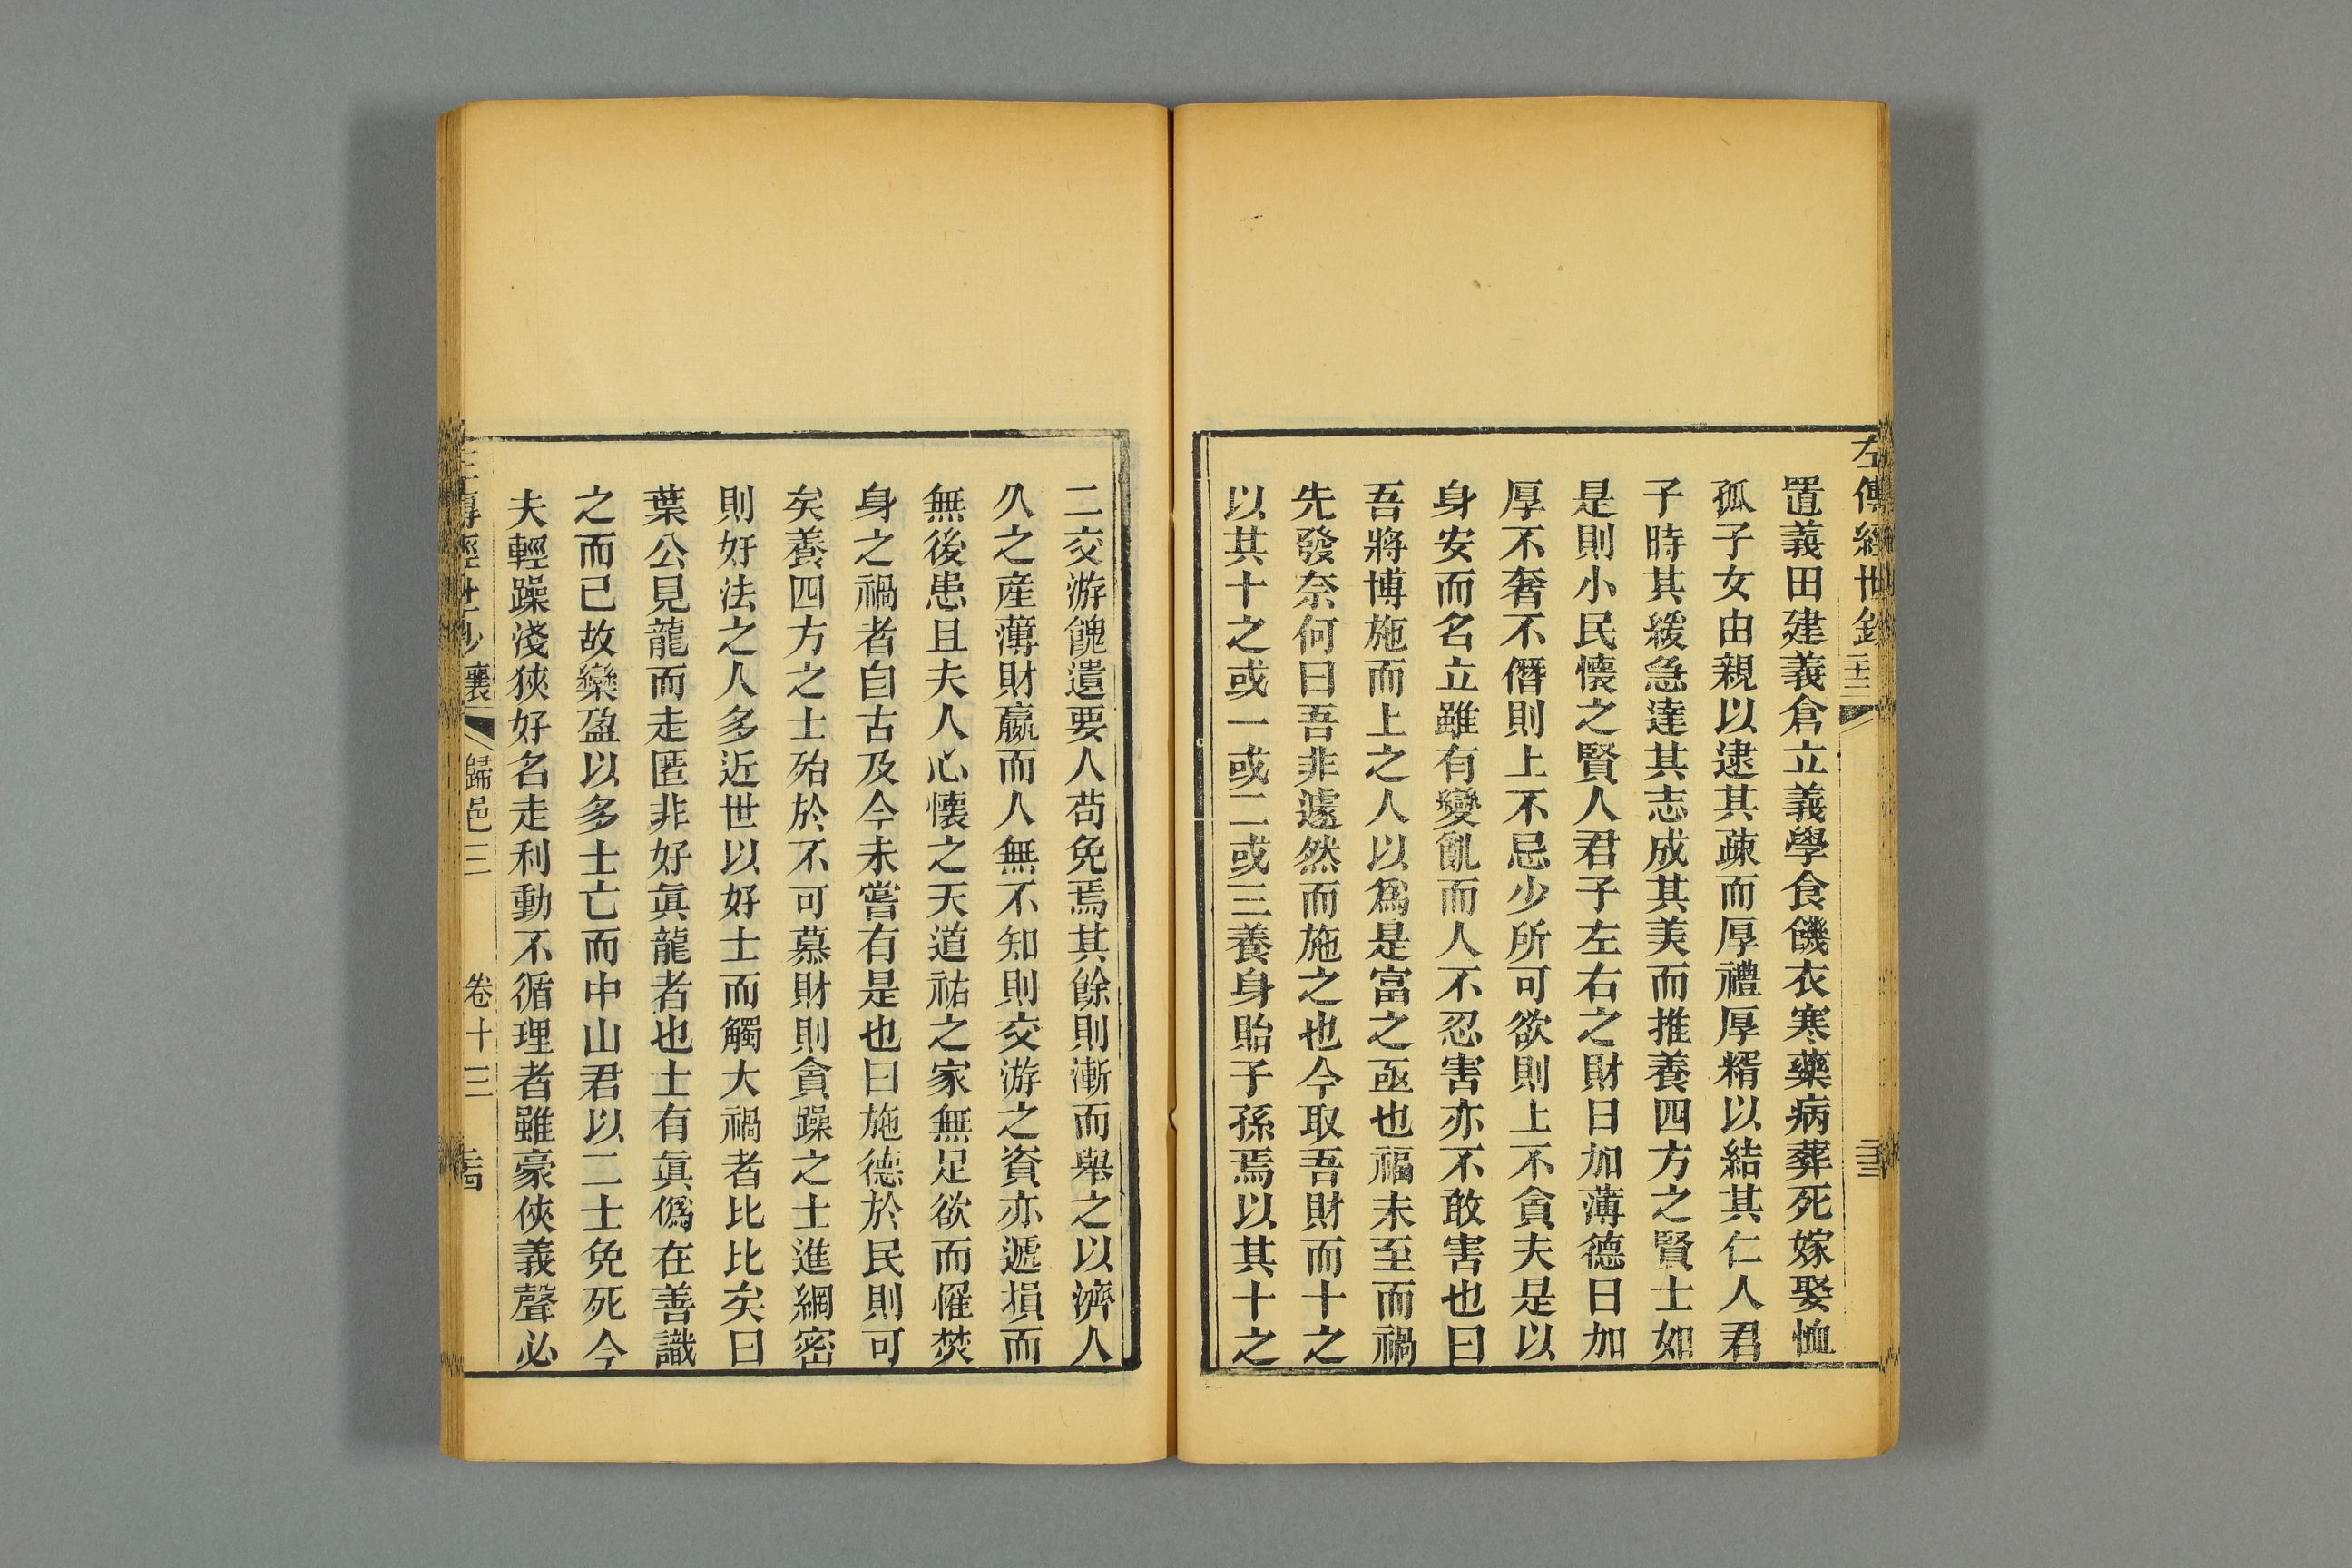 左傳經世鈔 二十二 二十三
置義田建義倉立義學食饑衣寒藥病葬死嫁娶恤
孤子女由親以逮其疎而厚禮厚糈以結其仁人君
子時其緩急達其志成其美而推養四方之賢士如
是則小民懷之賢人君子左右之財日加薄德日加
厚不奢不僭則上不忌少所可欲則上不貪夫是以
身安而名立雖有變亂而人不忍害亦不敢害也曰
吾將博施而上之人以爲是富之亟也福未至而禍
先發奈何曰吾非遽然而施之也今取吾財而十之
以其十之或一或二或三養身貽子孫焉以其十之
二交游餽遺要人苟免焉其餘則漸而舉之以濟人
久之産薄財嬴而人無不知則交游之資亦遞損而
無後患且夫人心懷之天道祐之家無足欲而罹焚
身之禍者自古及今未嘗有是也曰施德於民則可
矣養四方之士殆於不可慕財則貪躁之士進綱密
則好法之人多近世以好士而觸大禍者比比矣曰
葉公見龍而走匿非好眞龍者也士有眞僞在善識
之而已故欒盈以多士亡而中山君以二士免死今
夫輕躁淺狹好名走利動不循理者雖豪俠義聲必
左傳經世鈔 襄 歸邑三 卷十三 二十四